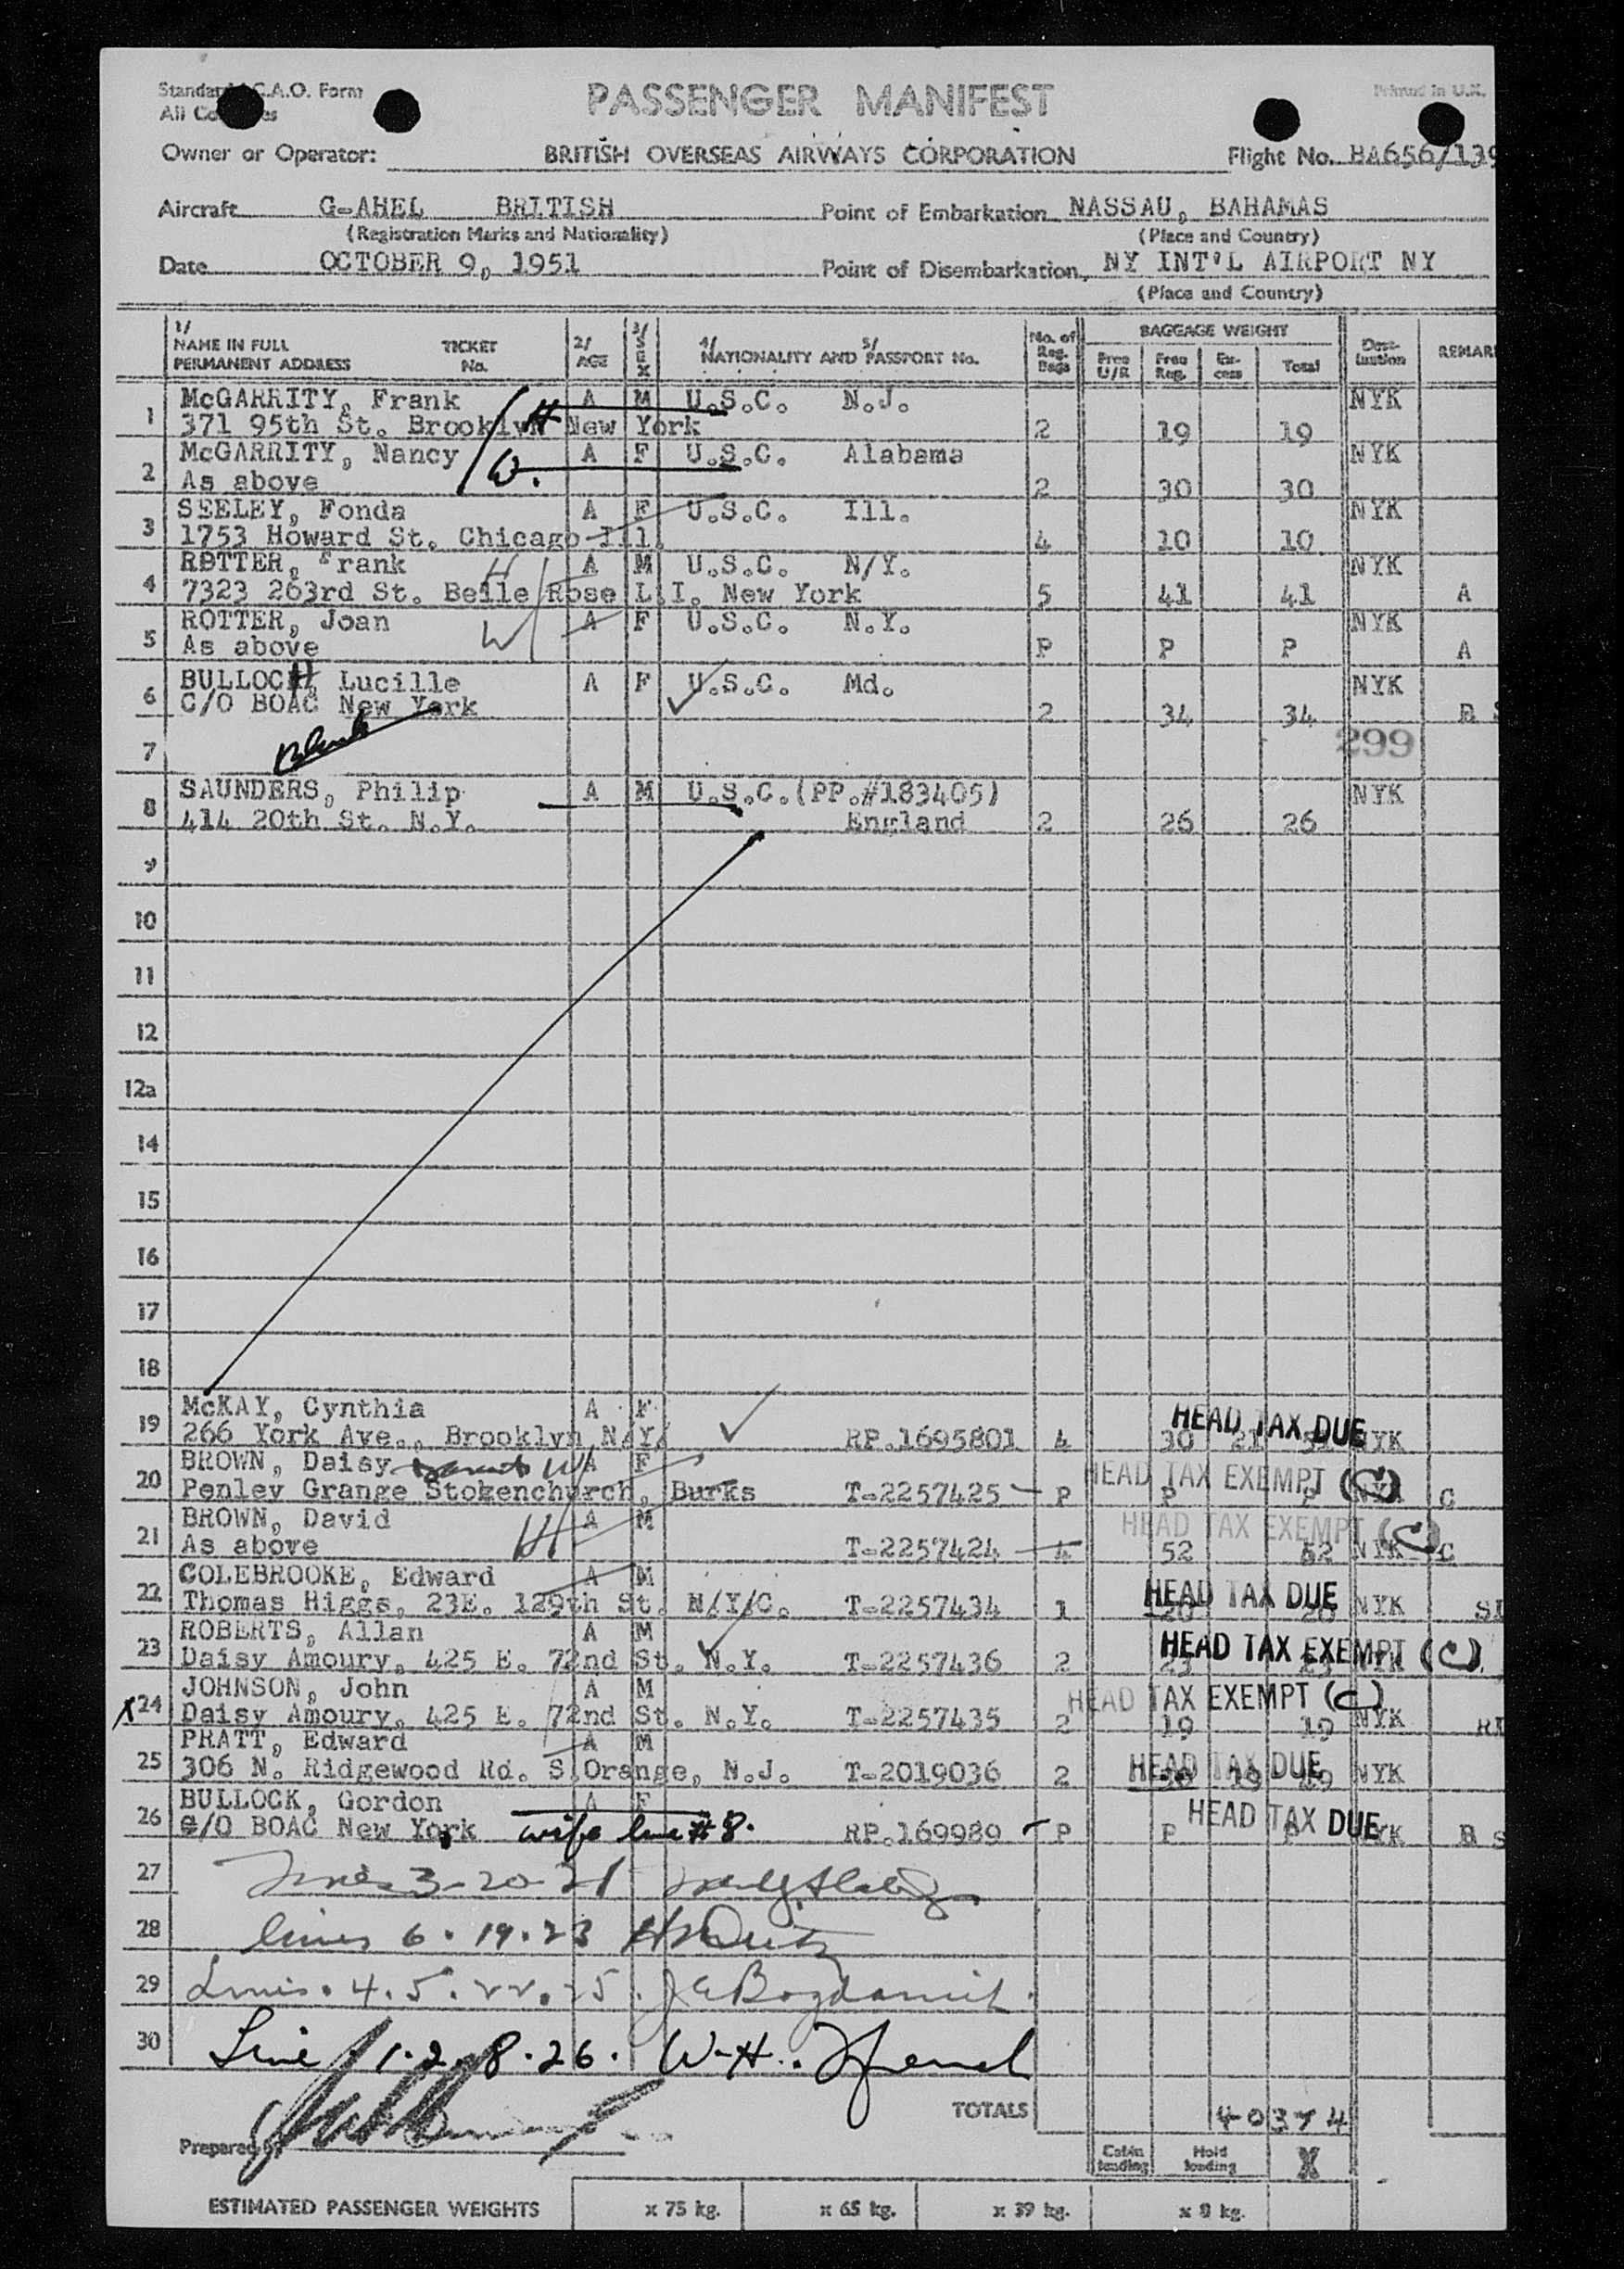 Standard I.C.A.O. Form
All Countries
PASSENGER MANIFEST
Printed in U.K.
Owner or Operator: BRITISH OVERSEAS AIRWAYS CORPORATION Flight No. BA656/139
Aircraft G-AHEL BRITISH Point of Embarkation NASSAU, BAHAMAS
(Registration Marks and Nationality) (Place and Country)
Date OCTOBER 9, 1951 Point of Disembarkation, NY INT'L AIRPORT NY
(Place and Country)
1/ NAME IN FULL PERMANENT ADDRESS TICKET No. 2/ AGE 3/ SEX 4/ NATIONALITY AND 5/ PASSPORT No. No. of Reg. Bags BAGGAGE WEIGHT Free U/R Free Reg. Ex-cess Total Dest-ination REMAR
1 McGARRITY, Frank H A M U.S.C. N.J. NYK
371 95th St. Brooklyn New York 2 19 19
2 McGARRITY, Nancy W. A F U.S.C. Alabama NYK
As above 2 30 30
3 SEELEY, Fonda A F U.S.C. Ill. NYK
1753 Howard St. Chicago Ill. 4 10 10
4 ROTTER, Frank H A M U.S.C. N/Y. NYK
7323 263rd St. Belle Rose L.I. New York 5 41 41 A
5 ROTTER, Joan W A F U.S.C. N.Y. NYK
As above P P P A
6 BULLOCH, Lucille A F U.S.C. Md. NYK
C/O BOAC New York 2 34 34 B S
7 Blank 299
8 SAUNDERS, Philip A M U.S.C.(PP.#183405) NYK
414 20th St. N.Y. England 2 26 26
9
10
11
12
12a
14
15
16
17
18
19 McKAY, Cynthia A F HEAD TAX DUE
266 York Ave., Brooklyn N/Y/ RP.1695801 4 30 21 51 NYK
20 BROWN, Daisy W A F HEAD TAX EXEMPT (C)
Penley Grange Stokenchurch, Burks T-2257425 P P P NYK C
21 BROWN, David H A M HEAD TAX EXEMPT (C)
As above T-2257424 4 52 52 NYK C
22 COLEBROOKE, Edward A M HEAD TAX DUE
Thomas Higgs, 23E. 129th St. N/Y/C. T-2257434 1 20 20 NYK SI
23 ROBERTS, Allan A M HEAD TAX EXEMPT (C)
Daisy Amoury, 425 E. 72nd St. N.Y. T-2257436 2 23 23 NYK
X24 JOHNSON, John A M HEAD TAX EXEMPT (C)
Daisy Amoury, 425 E. 72nd St. N.Y. T-2257435 2 19 19 NYK
25 PRATT, Edward A M HEAD TAX DUE
306 N. Ridgewood Rd. S.Orange, N.J. T-2019036 2 30 19 49 NYK
26 BULLOCK, Gordon A F HEAD TAX DUE
C/O BOAC New York wife line #8. RP.169989 P P P NYK B S
27 Lines 3-20-21
28 lines 6. 19. 23
29 Lines. 4. 5. 22. 25.
30 Line 1. 2. 8. 26. W-H.
TOTALS 40374
Prepared by
Cabin loading Hold loading X
ESTIMATED PASSENGER WEIGHTS x 75 kg. x 65 kg. x 39 kg. x 8 kg.